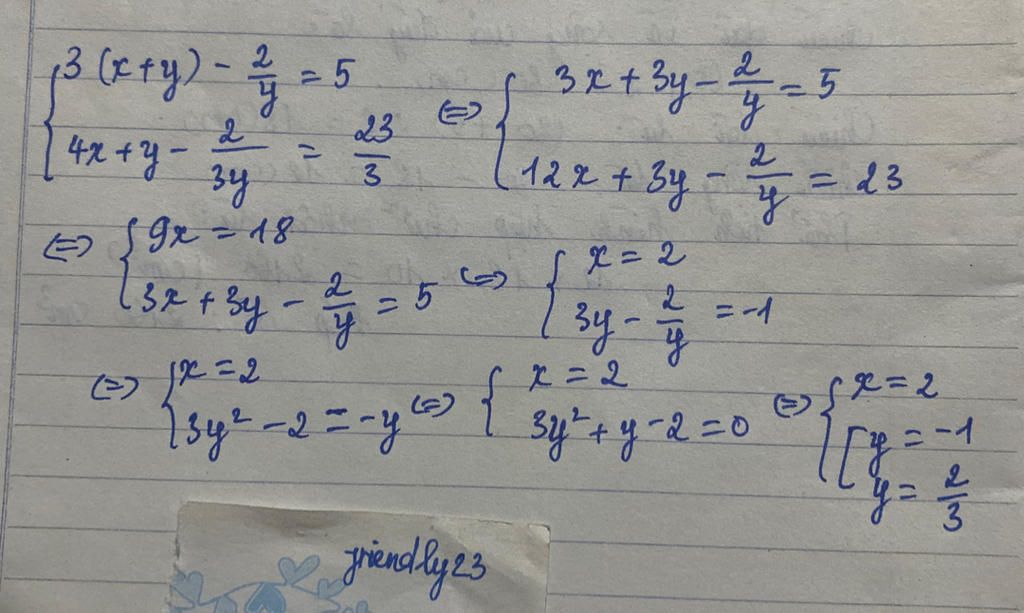 { 3(x+y) - 2/y = 5 ; 4x+y - 2/3y = 23/3 <=> { 3x+3y - 2/y = 5 ; 12x + 3y - 2/y = 23
<=> { 9x = 18 ; 3x + 3y - 2/y = 5 <=> { x = 2 ; 3y - 2/y = -1
<=> { x = 2 ; 3y² - 2 = -y <=> { x = 2 ; 3y² + y - 2 = 0 <=> { x = 2 ; [ y = -1 ; y = 2/3
friendly23